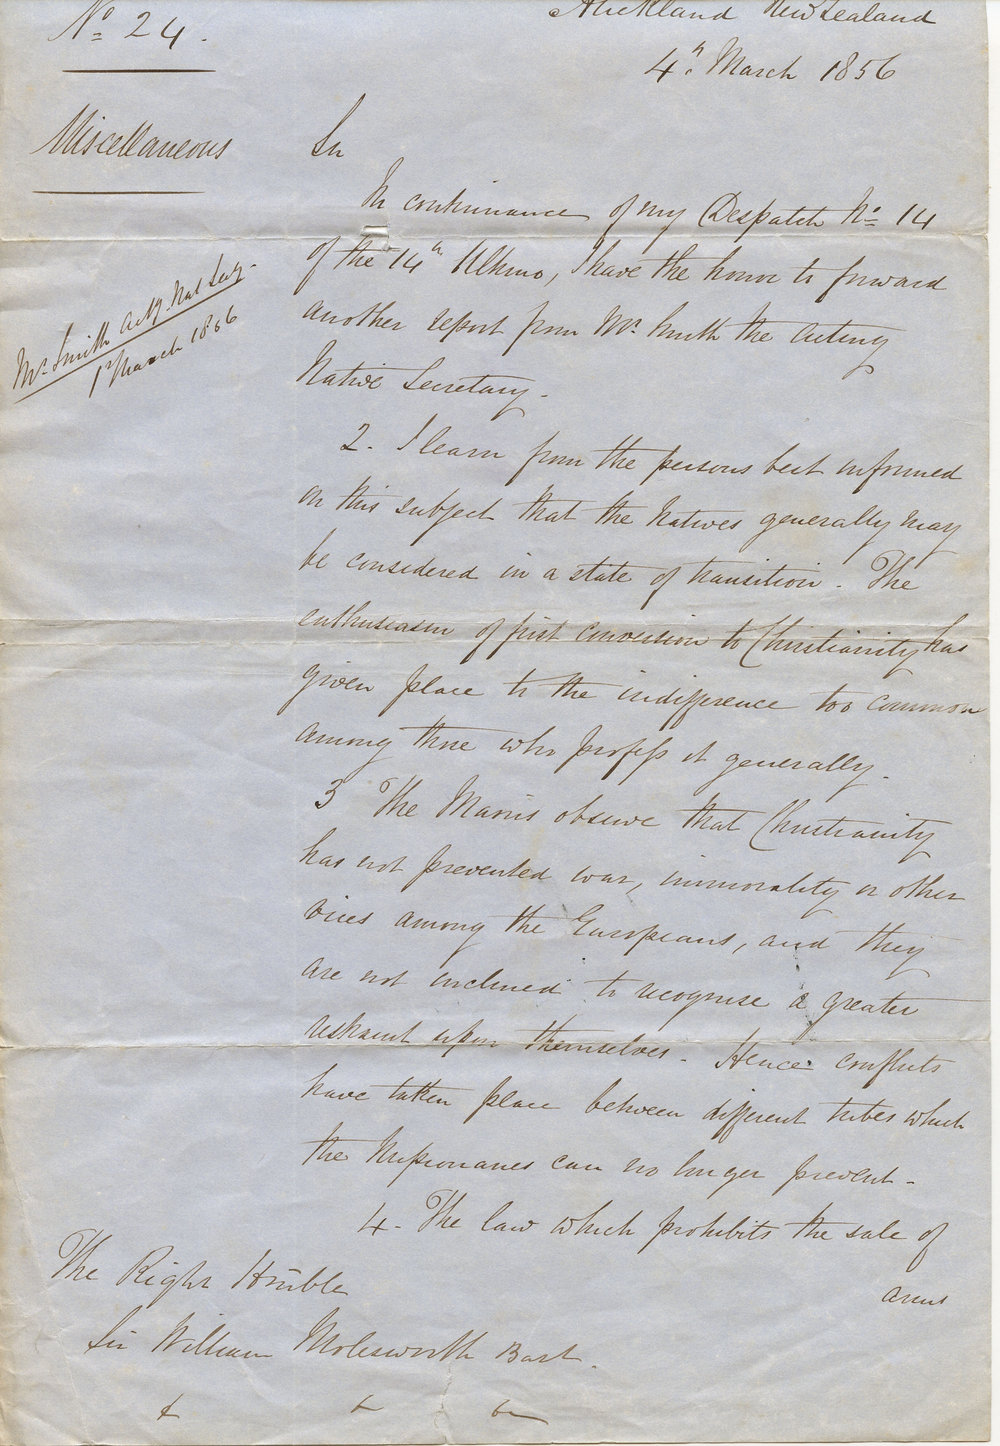 No. 24.
Auckland New Zealand
4th March 1856
Miscellaneous
Sir
In continuance of my Despatch No. 14
of the 14th Ultimo, I have the honor to forward
another report from Mr. Smith the Acting
Native Secretary.
Mr. Smith Actg. Nat. Secy.
1st March 1856
2. I learn from the persons best informed
on this subject that the Natives generally may
be considered in a state of transition. The
enthusiasm of first conversion to Christianity has
given place to the indifference too common
among those who profess it generally.
3 The Maoris observe that Christianity
has not prevented war, immorality or other
vices among the Europeans, and they
are not inclined to recognise a greater
restraint upon themselves. Hence conflicts
have taken place between different tribes which
the Missionaries can no longer prevent.
4. The law which prohibits the sale of
arms
The Right Honble
Sir William Molesworth Bart.